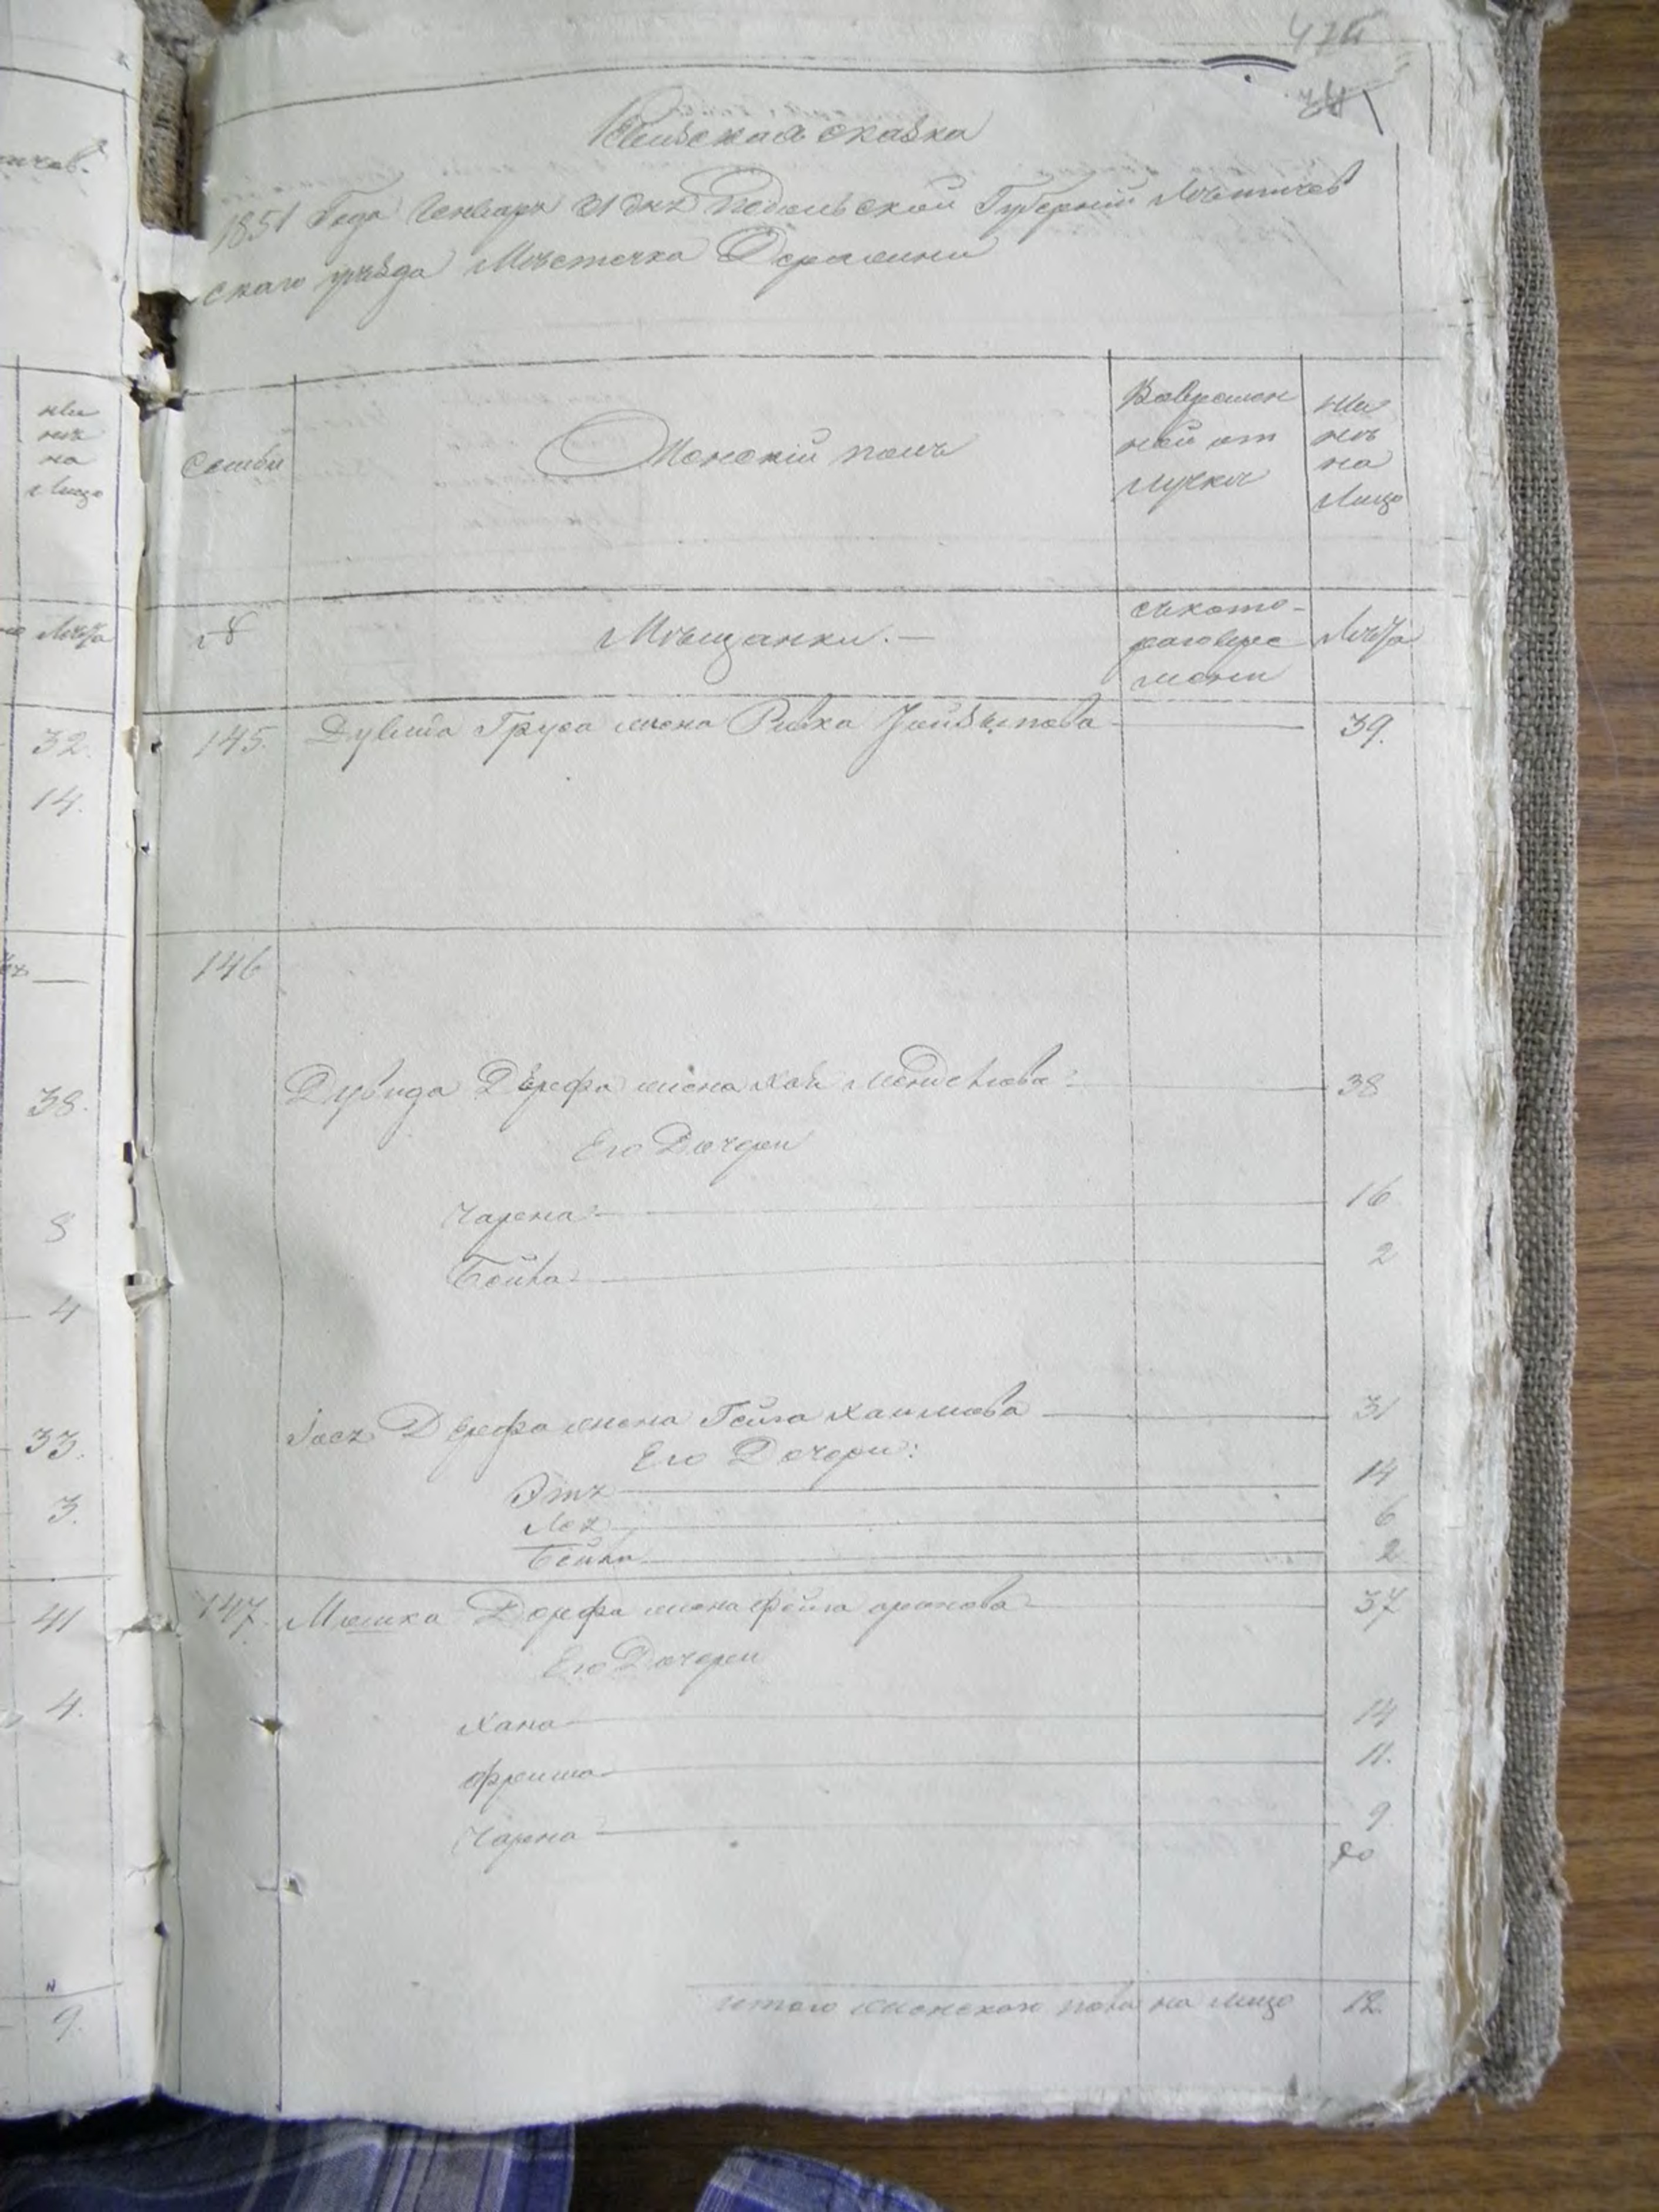 Ревизская сказка
1851 Года Генваря 31 дня Подольской Губернии Летичев
скаго уѣзда Мѣстечка Деражни
Семьи
Женскій полъ
Вовремен
ной от
лучкѣ
Ны
нѣ
на
Лицо
№
Мѣщанки. —
съкото-
раговре
мени
Лѣта
145. Дувида Груса жена Ривка 39.
146
Дувида Дерфа жена Хая Менделева 38
Его Дочери
Чарна 16
Бейла 2
Дерфа жена Гейга Хаимова 31
Его Дочери:
Этя 14
Лея 6
Бейла 2
147. Мошка Дорфа жена Фейга 37
Его Дочери
Хана 14
Фрейма 11.
Чарна 9
итого женскаго пола на лицо 12.
ны
нѣ
на
Лицо
Лѣта
32.
14.
38.
8
4
33.
3.
41
4.
9.